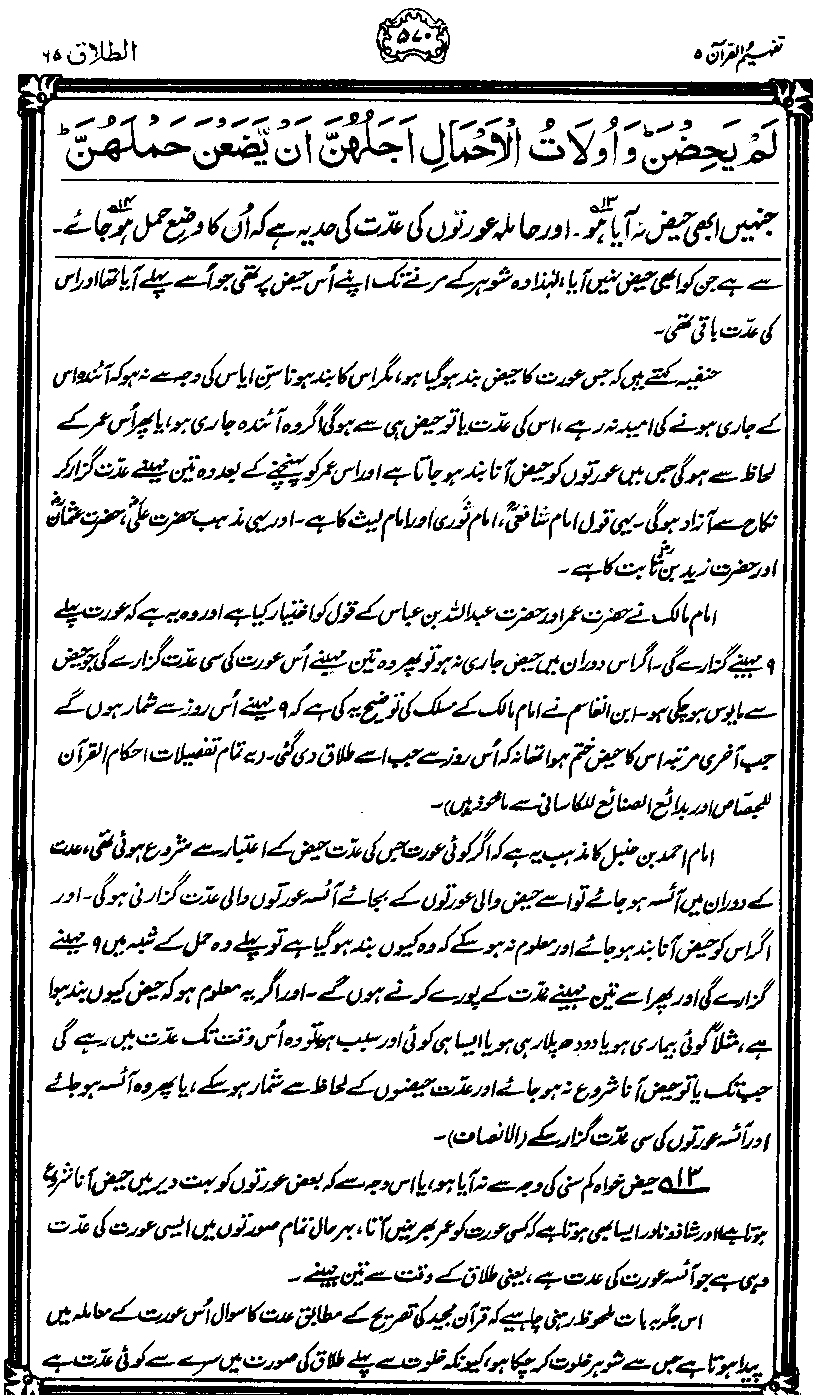 تفہیم القرآن ۵
۵۷۰
الطلاق ۶۵
لَمْ يَحِضْنَ ؕ وَاُولَاتُ الْاَحْمَالِ اَجَلُهُنَّ اَنْ يَّضَعْنَ حَمْلَهُنَّ ؕ
جنہیں ابھی حیض نہ آیا ہو۔ ۱۳ اور حاملہ عورتوں کی عدّت کی حد یہ ہے کہ اُن کا وضعِ حمل ہو جائے۔ ۱۴
سے ہے جن کو ابھی حیض نہیں آیا، لہٰذا وہ شوہر کے مرنے تک اپنے اُس حیض پر تھی جو اُسے پہلے آیا تھا اور اس
کی عدّت باقی تھی۔
حنفیہ کہتے ہیں کہ جس عورت کا حیض بند ہو گیا ہو، مگر اس کا بند ہونا سنِ ایاس کی وجہ سے نہ ہو کہ آئندہ اس
کے جاری ہونے کی امید نہ رہے، اس کی عدّت یا تو حیض ہی سے ہوگی اگر وہ آئندہ جاری ہو، یا پھر اُس عمر کے
لحاظ سے ہوگی جس میں عورتوں کو حیض آنا بند ہو جاتا ہے اور اس عمر کو پہنچنے کے بعد وہ تین مہینے عدّت گزار کر
نکاح سے آزاد ہوگی۔ یہی قول امام شافعیؒ، امام ثوری اور امام لیث کا ہے۔ اور یہی مذہب حضرت علیؓ، حضرت عثمانؓ
اور حضرت زیدؓ بن ثابت کا ہے۔
امام مالک نے حضرت عمر اور حضرت عبداللہ بن عباس کے قول کو اختیار کیا ہے اور وہ یہ ہے کہ عورت پہلے
۹ مہینے گزارے گی۔ اگر اس دوران میں حیض جاری نہ ہو تو پھر وہ تین مہینے اُس عورت کی سی عدّت گزارے گی جو حیض
سے مایوس ہو چکی ہو۔ ابن القاسم نے امام مالک کے مسلک کی توضیح یہ کی ہے کہ ۹ مہینے اُس روز سے شمار ہوں گے
جب آخری مرتبہ اس کا حیض ختم ہوا تھا نہ کہ اُس روز سے جب اسے طلاق دی گئی۔ (یہ تمام تفصیلات احکام القرآن
للجصاص اور بدائع الصنائع للکاسانی سے ماخوذ ہیں)۔
امام احمد بن حنبل کا مذہب یہ ہے کہ اگر کوئی عورت جس کی عدّت حیض کے اعتبار سے شروع ہوئی تھی، عدت
کے دوران میں آئسہ ہو جائے تو اسے حیض والی عورتوں کے بجائے آئسہ عورتوں والی عدّت گزارنی ہوگی۔ اور
اگر اس کو حیض آنا بند ہو جائے اور معلوم نہ ہو سکے کہ وہ کیوں بند ہو گیا ہے تو پہلے وہ حمل کے شبہ میں ۹ مہینے
گزارے گی اور پھر اسے تین مہینے عدّت کے پورے کرنے ہوں گے۔ اور اگر یہ معلوم ہو کہ حیض کیوں بند ہوا
ہے، مثلاً کوئی بیماری ہو یا دودھ پلا رہی ہو یا ایسا ہی کوئی اور سبب ہو تو وہ اُس وقت تک عدّت میں رہے گی
جب تک یا تو حیض آنا شروع نہ ہو جائے اور عدّت حیضوں کے لحاظ سے شمار ہو سکے، یا پھر وہ آئسہ ہو جائے
اور آئسہ عورتوں کی سی عدّت گزار سکے (الانصاف)۔
۱۳ حیض خواہ کم سنی کی وجہ سے نہ آیا ہو، یا اس وجہ سے کہ بعض عورتوں کو بہت دیر میں حیض آنا شروع
ہوتا ہے، اور شاذ و نادر ایسا بھی ہوتا ہے کہ کسی عورت کو عمر بھر نہیں آتا، بہر حال تمام صورتوں میں ایسی عورت کی عدّت
وہی ہے جو آئسہ عورت کی عدت ہے، یعنی طلاق کے وقت سے تین مہینے۔
اس جگہ یہ بات ملحوظ رہنی چاہیے کہ قرآن مجید کی تصریح کے مطابق عدت کا سوال اُس عورت کے معاملہ میں
پیدا ہوتا ہے جس سے شوہر خلوت کر چکا ہو، کیونکہ خلوت سے پہلے طلاق کی صورت میں سرے سے کوئی عدّت ہے